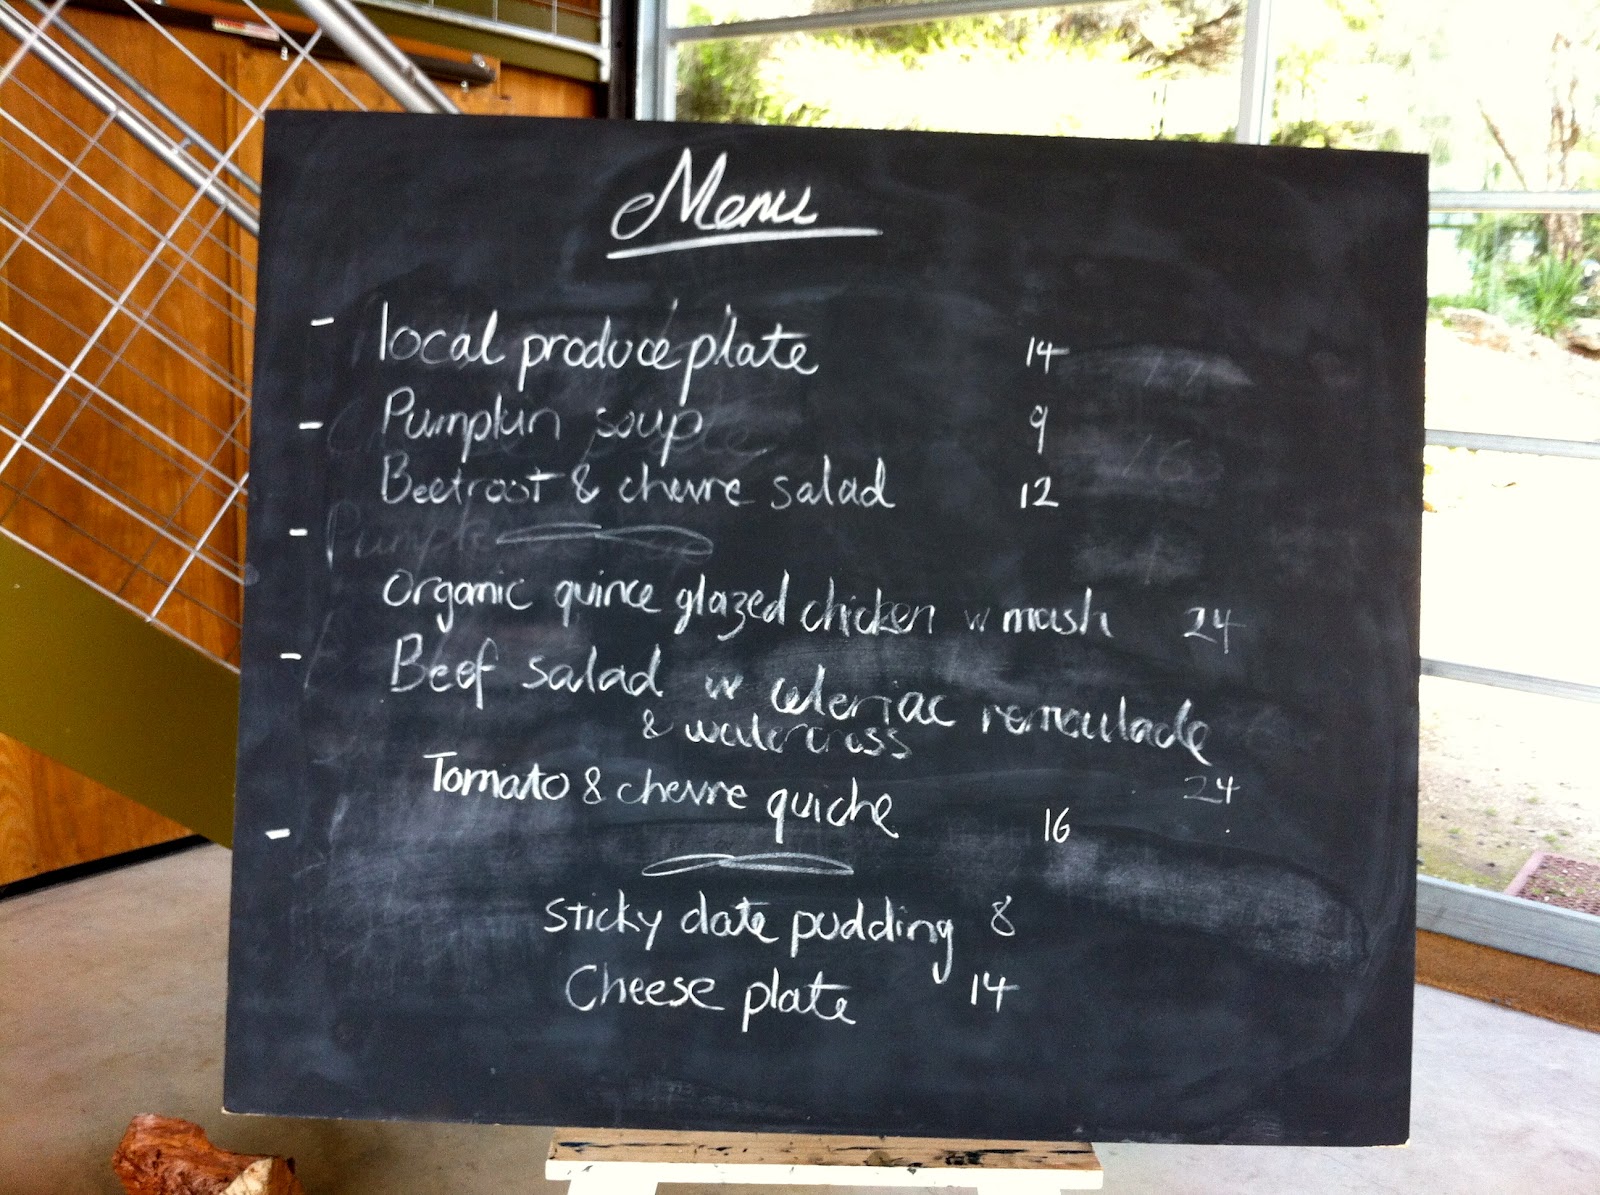 Menu
- local produce plate 14
- Pumpkin soup 9
Beetroot & chevre salad 12
- Organic quince glazed chicken w mash 24
- Beef salad w celeriac remoulade
& watercross
24
Tomato & chevre quiche 16
- Sticky date pudding 8
Cheese plate 14